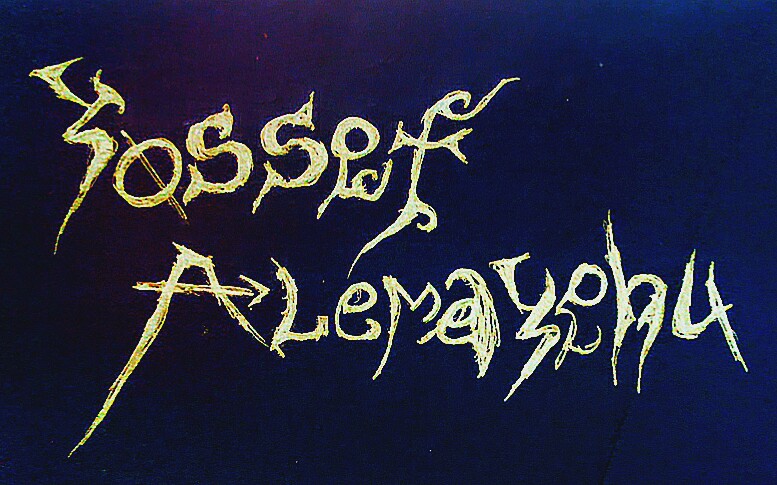 Yossef
Alemayehu